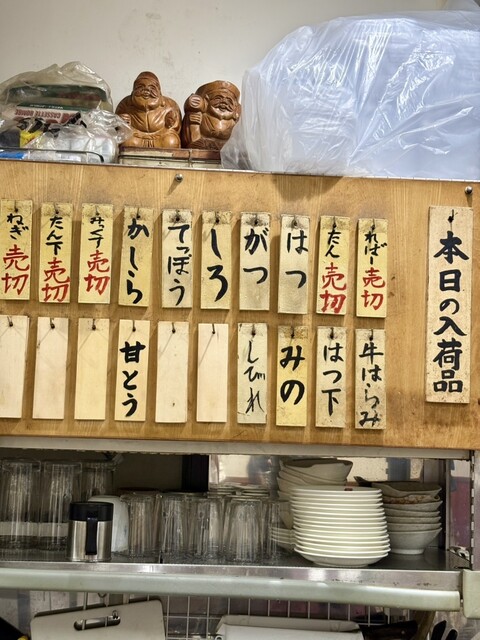 本日の入荷品
ればー売切
たん売切
はつ
がつ
しろ
てっぽう
かしら
みっくす売切
たん下売切
ねぎ売切
牛はらみ
はつ下
みの
しびれ
甘とう